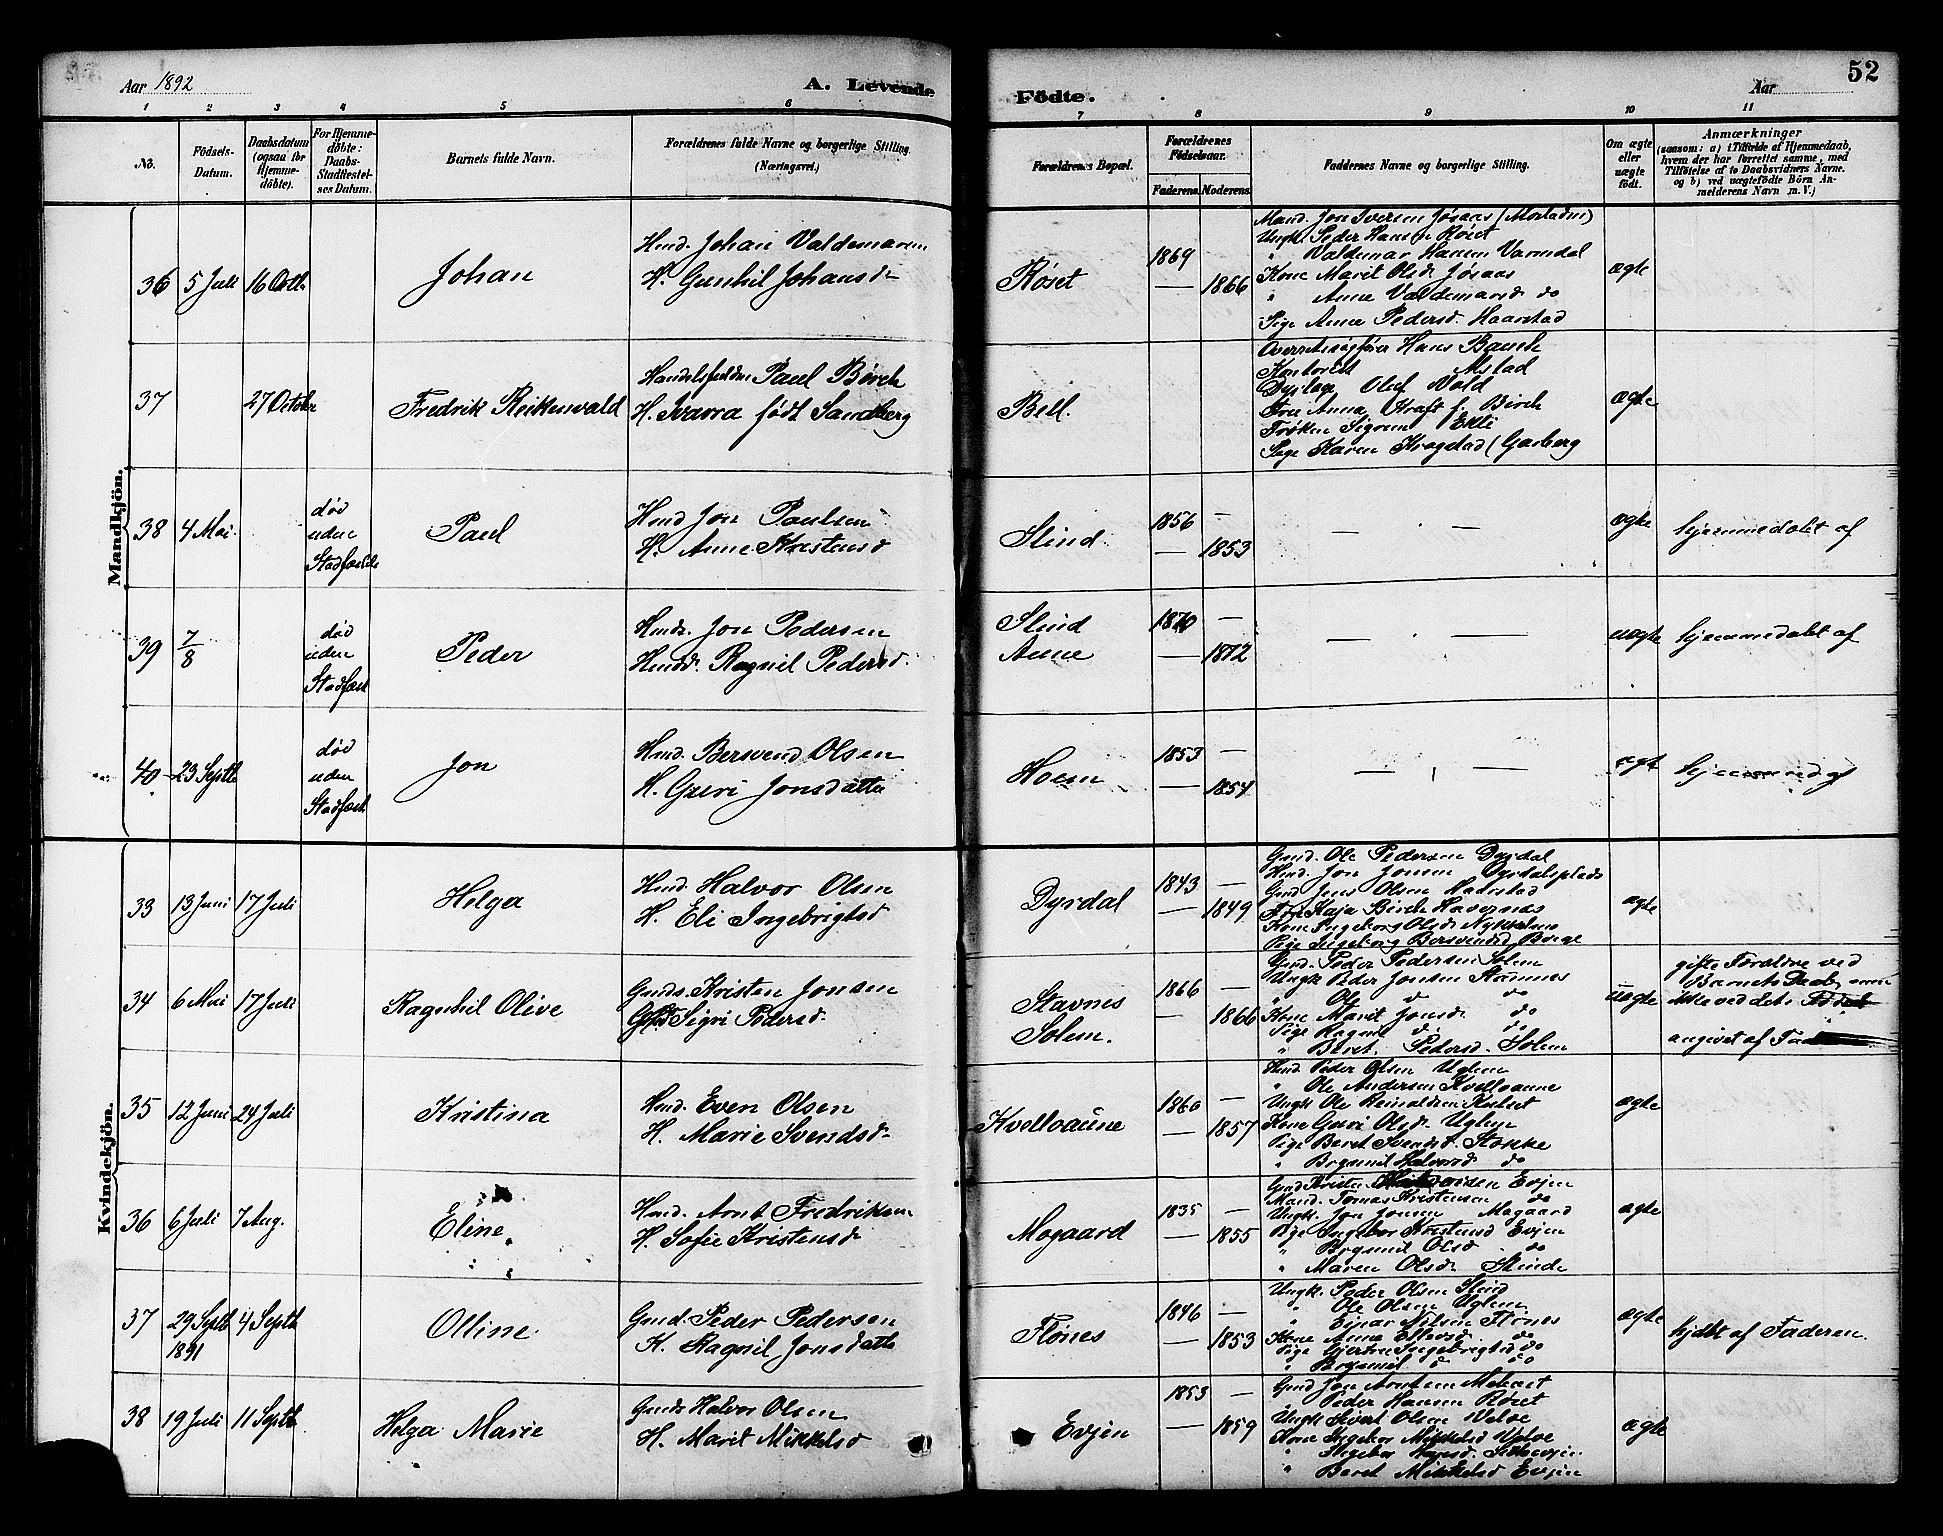 Aar 1892
A. Levende Födte.
Aar
52
1 2 3 4 5 6 7 8 9 10 11
No.
Födsels-Datum.
Daabsdatum (ogsaa for Hjemme-döbte).
For Hjemme-döbte: Daabs-Stadfæstel-ses Datum.
Barnets fulde Navn.
Forældrenes fulde Navne og borgerlige Stilling. (Næringsvei.)
Forældrenes Bopæl.
Forældrenes Födselsaar.
Faderens. Moderens.
Faddernes Navne og borgerlige Stilling.
Om ægte eller uægte födt.
Anmærkninger
(saasom: a) i Tilfælde af Hjemmedaab, hvem der har forrettet samme, med Tilföielse af to Daabsvidners Navne. og b) ved uægtefödte Börn An-melderens Navn m. V.)
Mandkjön.
36 5 Juli 16 Octb. Johan
Hmd. Johan Valdemarsen
H. Gunhil Johansd
Røset
1869 —
— 1866
Mand. Jon Iversen Jøsaas (Mostadm)
Ungk. Peder Hansen Røset
" Valdemar Hansen Varmdal
Kone Marit Olsd. Jøsaas
" Anne Valdemarsd do
Pige Anne Pedersd. Haarstad
ægte
37 27 October Fredrik Reikenvald
Paul Börch
H. Svavra født Sandberg
Bell.
Overretssagfører Hans Bauck
Kontorist Mstad
Olaf Wold
Frue Anna Kraft f. Birch
Frøken Sigrun Ekli
Pige Karen Kragstad (Garberg
ægte
38 4 Mai død uden Stadfæstelse Paul
Hmd Jon Paulsen
H. Anne Kristensd
Slind
1856 —
— 1853
— . —
ægte
hjemmedøbt af
39 7/8 død uden Stadfæst Peder
Hmds. Jon Pedersen
Hmdd. Ragnil Pedersd.
Slind
Aune
1870 —
— 1872
— . —
uægte
hjemmedøbt af
40 23 Septb død uden Stadfæst Jon
Hmd. Bersvend Olsen
H. Guri Jonsdatter
Hoem
1853 —
— 1854
— . —
ægte
hjemmed af
Kvindekjön.
33 13 Juni 17 Juli Helga
Hmd. Halvor Olsen
H. Eli Ingebrigtsd
Dyrdal
1843 —
— 1849
Gmd. Ole Pedersen Dyrdal
Hmd. Jon Jonsen Dyrdalsplads
Gmd Jens Olsen Madstad
Frue Kaja Birch Havernæs
Kone Ingeborg Olsd Nykkelmo
Pige Ingeborg Bersvendsd Borge
ægte
34 6 Mai 17 Juli Ragnhil Olive
Gmds. Kristen Jonsen
Sigri Pedersd.
Stavnes
Solem.
1866 —
— 1866
Gmd. Peder Pedersen Solem
Ungk Peder Jonsen Stavnes
" Ole do do
Kone Marit Jonsd. do
Pige Ragnil do do
" Beret Pedersd. Solem
uægte
gifte Forældre ved
Barnets Daab, men
ikke ved det
angivet af
35 12 Juni 24 Juli Kristina
Hmd. Even Olsen
H. Marie Svendsd
Kvelloaune
1860 —
— 1857
Hmd Peder Olsen Uglem
" Ole Andersen Kvelloaune
Ungk Ole Reinaldsen Rulset
Kone Guri Olsd. Uglem
Pige Beret Svendsd. Stokke
" Brynmil Halvorsd do
ægte
36 6 Juli 7 Aug. Eline
Hmd. Arnt Fredriksen
H. Sofie Kristensd
Mogaard
1835 —
— 1855
Gmd Kristen Evjen
Mand. Tomas Kristensen do
Ungk. Jon Jonsen Mogaard
Pige Ingebor Kristensd Evjen
" Brynmil Olsd do
" Maren Olsd. Slinde
ægte
37 29 Septb 1891 4 Septb Olline
Gmd. Peder Pedersen
K. Ragnil Jonsdatter
Flønes
1846 —
— 1853
Ungk. Peder Olsen Slind
" Ole Olsen Uglem
" Einar Nilsen Flønes
Kone Anne Estensd do
Pige Gjertru Ingebrigtsd do
" Brynmil do do
ægte
hjdbt af Faderen.
38 19 Juli 11 Septb Helga Marie
Gmds Halvor Olsen
H. Marit Mikkelsd
Evjen
1853 —
— 1859
Gmd Jon Arntsen Mebust
" Peder Hansen Røset
Ungk Sivert Olsen Velve
Kone Ingebor Mikkelsd Velve
" Ingebor
" Beret Mikkelsd Evjen
ægte